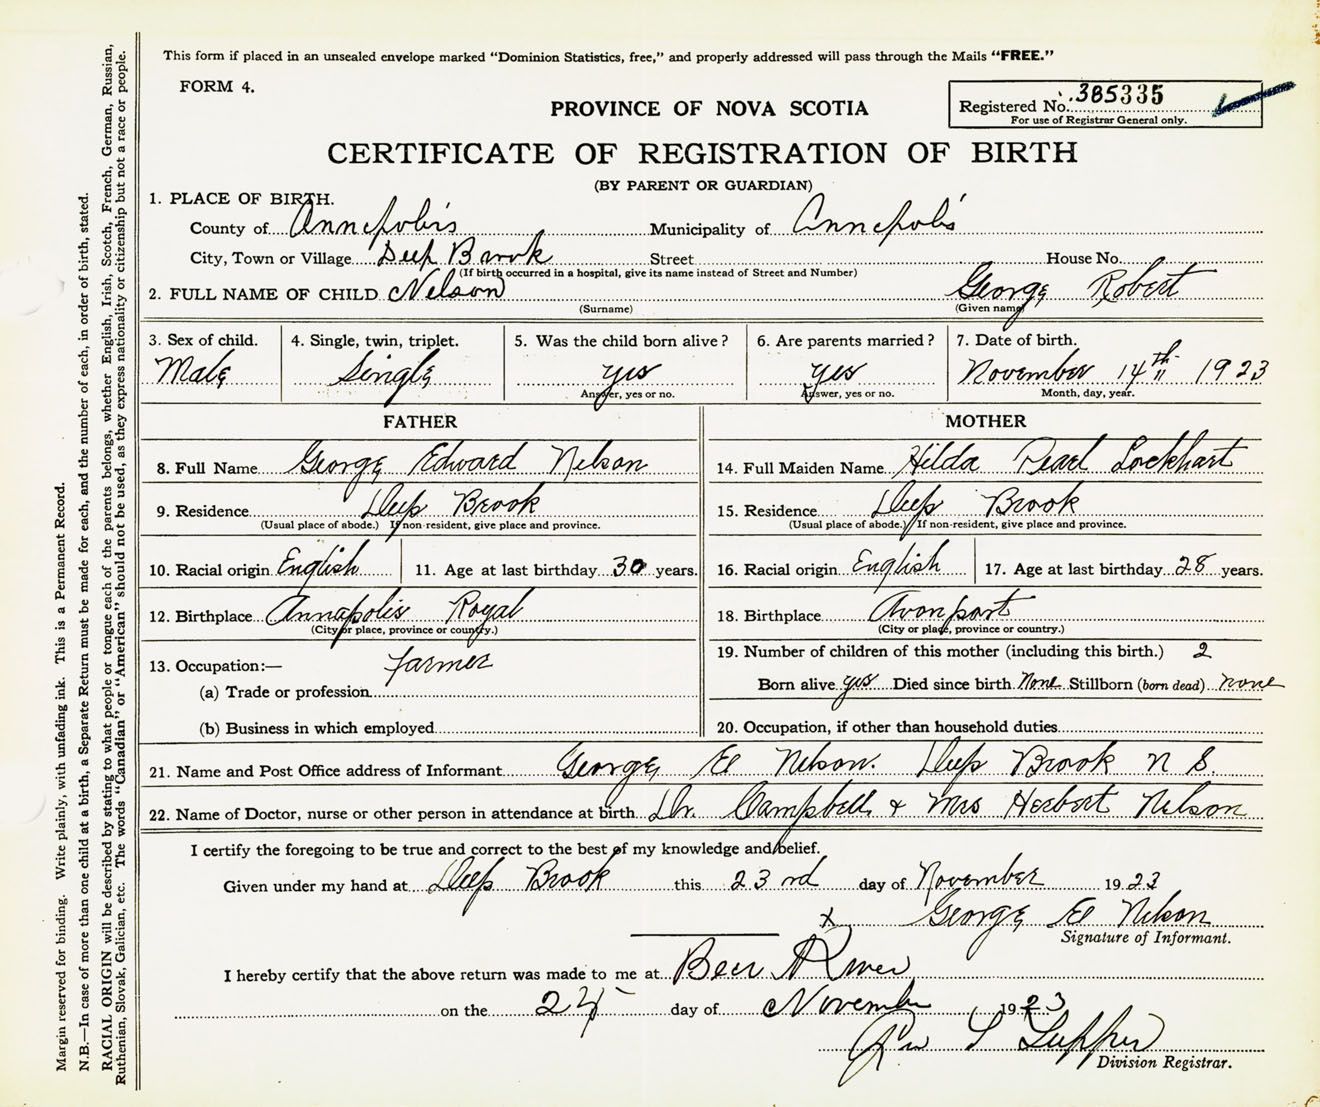 This form if placed in an unsealed envelope marked “Dominion Statistics, free,” and properly addressed will pass through the Mails “FREE.”
FORM 4.
Registered No. 385335
For use of Registrar General only.
PROVINCE OF NOVA SCOTIA
CERTIFICATE OF REGISTRATION OF BIRTH
(BY PARENT OR GUARDIAN)
1. PLACE OF BIRTH.
County of Annapolis Municipality of Annapolis
City, Town or Village Deep Brook Street House No.
(If birth occurred in a hospital, give its name instead of Street and Number)
2. FULL NAME OF CHILD Nelson George Robert
(Surname) (Given name)
3. Sex of child. 4. Single, twin, triplet. 5. Was the child born alive? 6. Are parents married? 7. Date of birth.
Male Single yes yes November 14th 1923
Answer, yes or no. Answer, yes or no. Month, day, year.
FATHER MOTHER
8. Full Name George Edward Nelson 14. Full Maiden Name Hilda Pearl Lockhart
9. Residence Deep Brook 15. Residence Deep Brook
(Usual place of abode.) If non-resident, give place and province. (Usual place of abode.) If non-resident, give place and province.
10. Racial origin English 11. Age at last birthday 30 years. 16. Racial origin English 17. Age at last birthday 28 years.
12. Birthplace Annapolis Royal 18. Birthplace Avonport
(City or place, province or country.) (City or place, province or country.)
13. Occupation:— farmer 19. Number of children of this mother (including this birth.) 2
(a) Trade or profession Born alive yes Died since birth None Stillborn (born dead) none
(b) Business in which employed 20. Occupation, if other than household duties
21. Name and Post Office address of Informant George E Nelson. Deep Brook N S.
22. Name of Doctor, nurse or other person in attendance at birth Dr. Campbell & Mrs Herbert Nelson
I certify the foregoing to be true and correct to the best of my knowledge and belief.
Given under my hand at Deep Brook this 23rd day of November 1923
x George E Nelson
Signature of Informant.
I hereby certify that the above return was made to me at Bear River
on the day of November 1923
S Tupper
Division Registrar.
Margin reserved for binding. Write plainly, with unfading ink. This is a Permanent Record.
N.B.—In case of more than one child at a birth, a Separate Return must be made for each, and the number of each, in order of birth, stated.
RACIAL ORIGIN will be described by stating to what people or tongue each of the parents belongs, whether English, Irish, Scotch, French, German, Russian,
Ruthenian, Slovak, Galician, etc. The words “Canadian” or “American” should not be used, as they express nationality or citizenship but not a race or people.